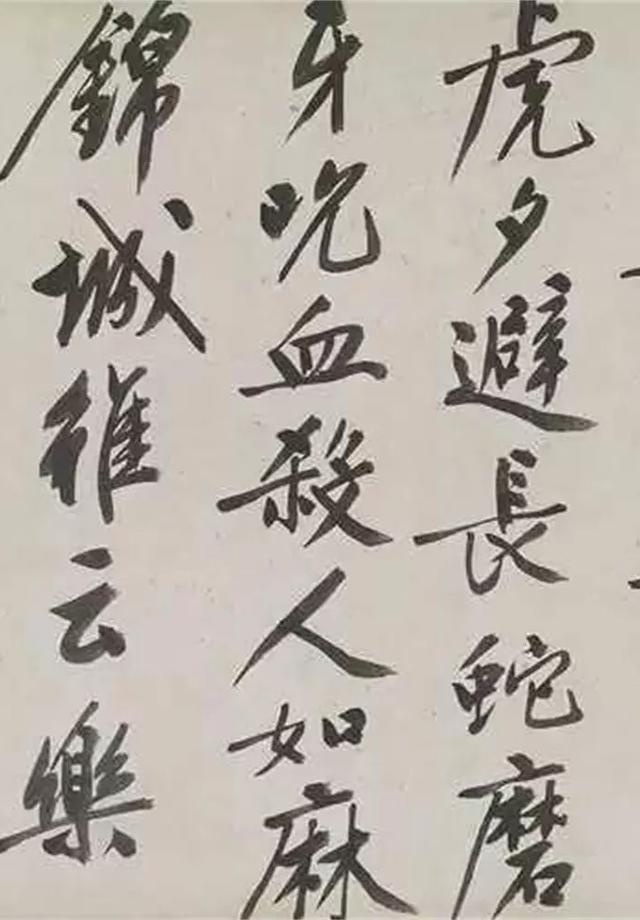 虎夕避長蛇磨
牙吮血殺人如麻
錦城雖云樂